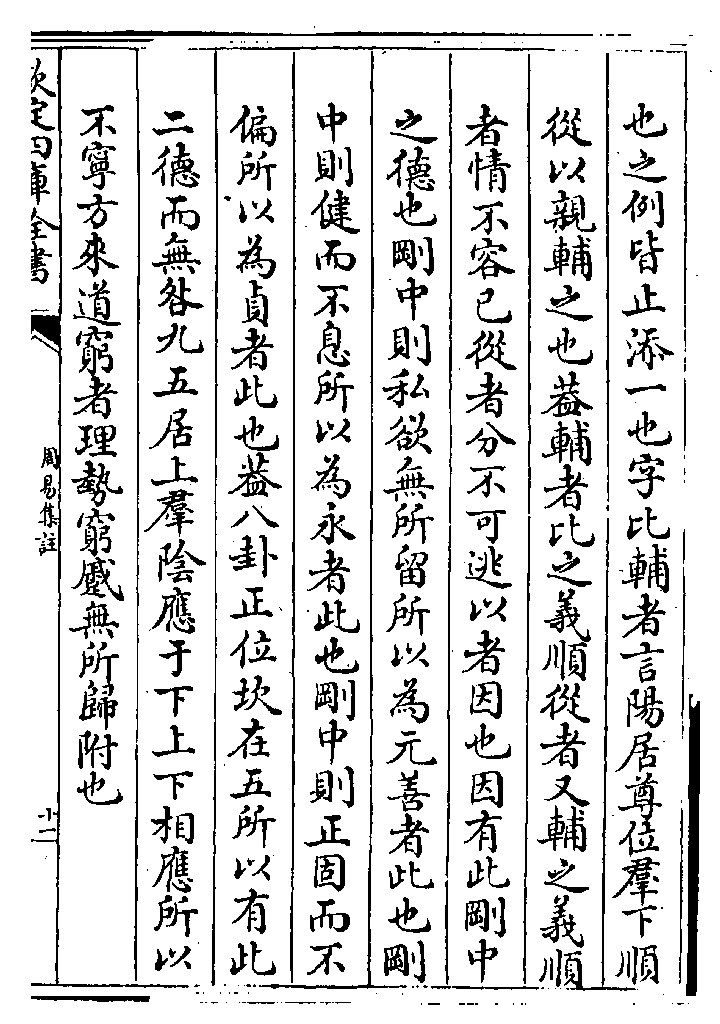 也之例皆止添一也字比輔者言陽居尊位羣下順
從以親輔之也葢輔者比之義順從者又輔之義順
者情不容已從者分不可逃以者因也因有此剛中
之德也剛中則私欲無所留所以為元善者此也剛
中則健而不息所以為永者此也剛中則正固而不
偏所以為貞者此也葢八卦正位坎在五所以有此
二德而無咎九五居上羣陰應于下上下相應所以
不寧方來道窮者理勢窮蹙無所歸附也
欽定四庫全書
周易集註
十二